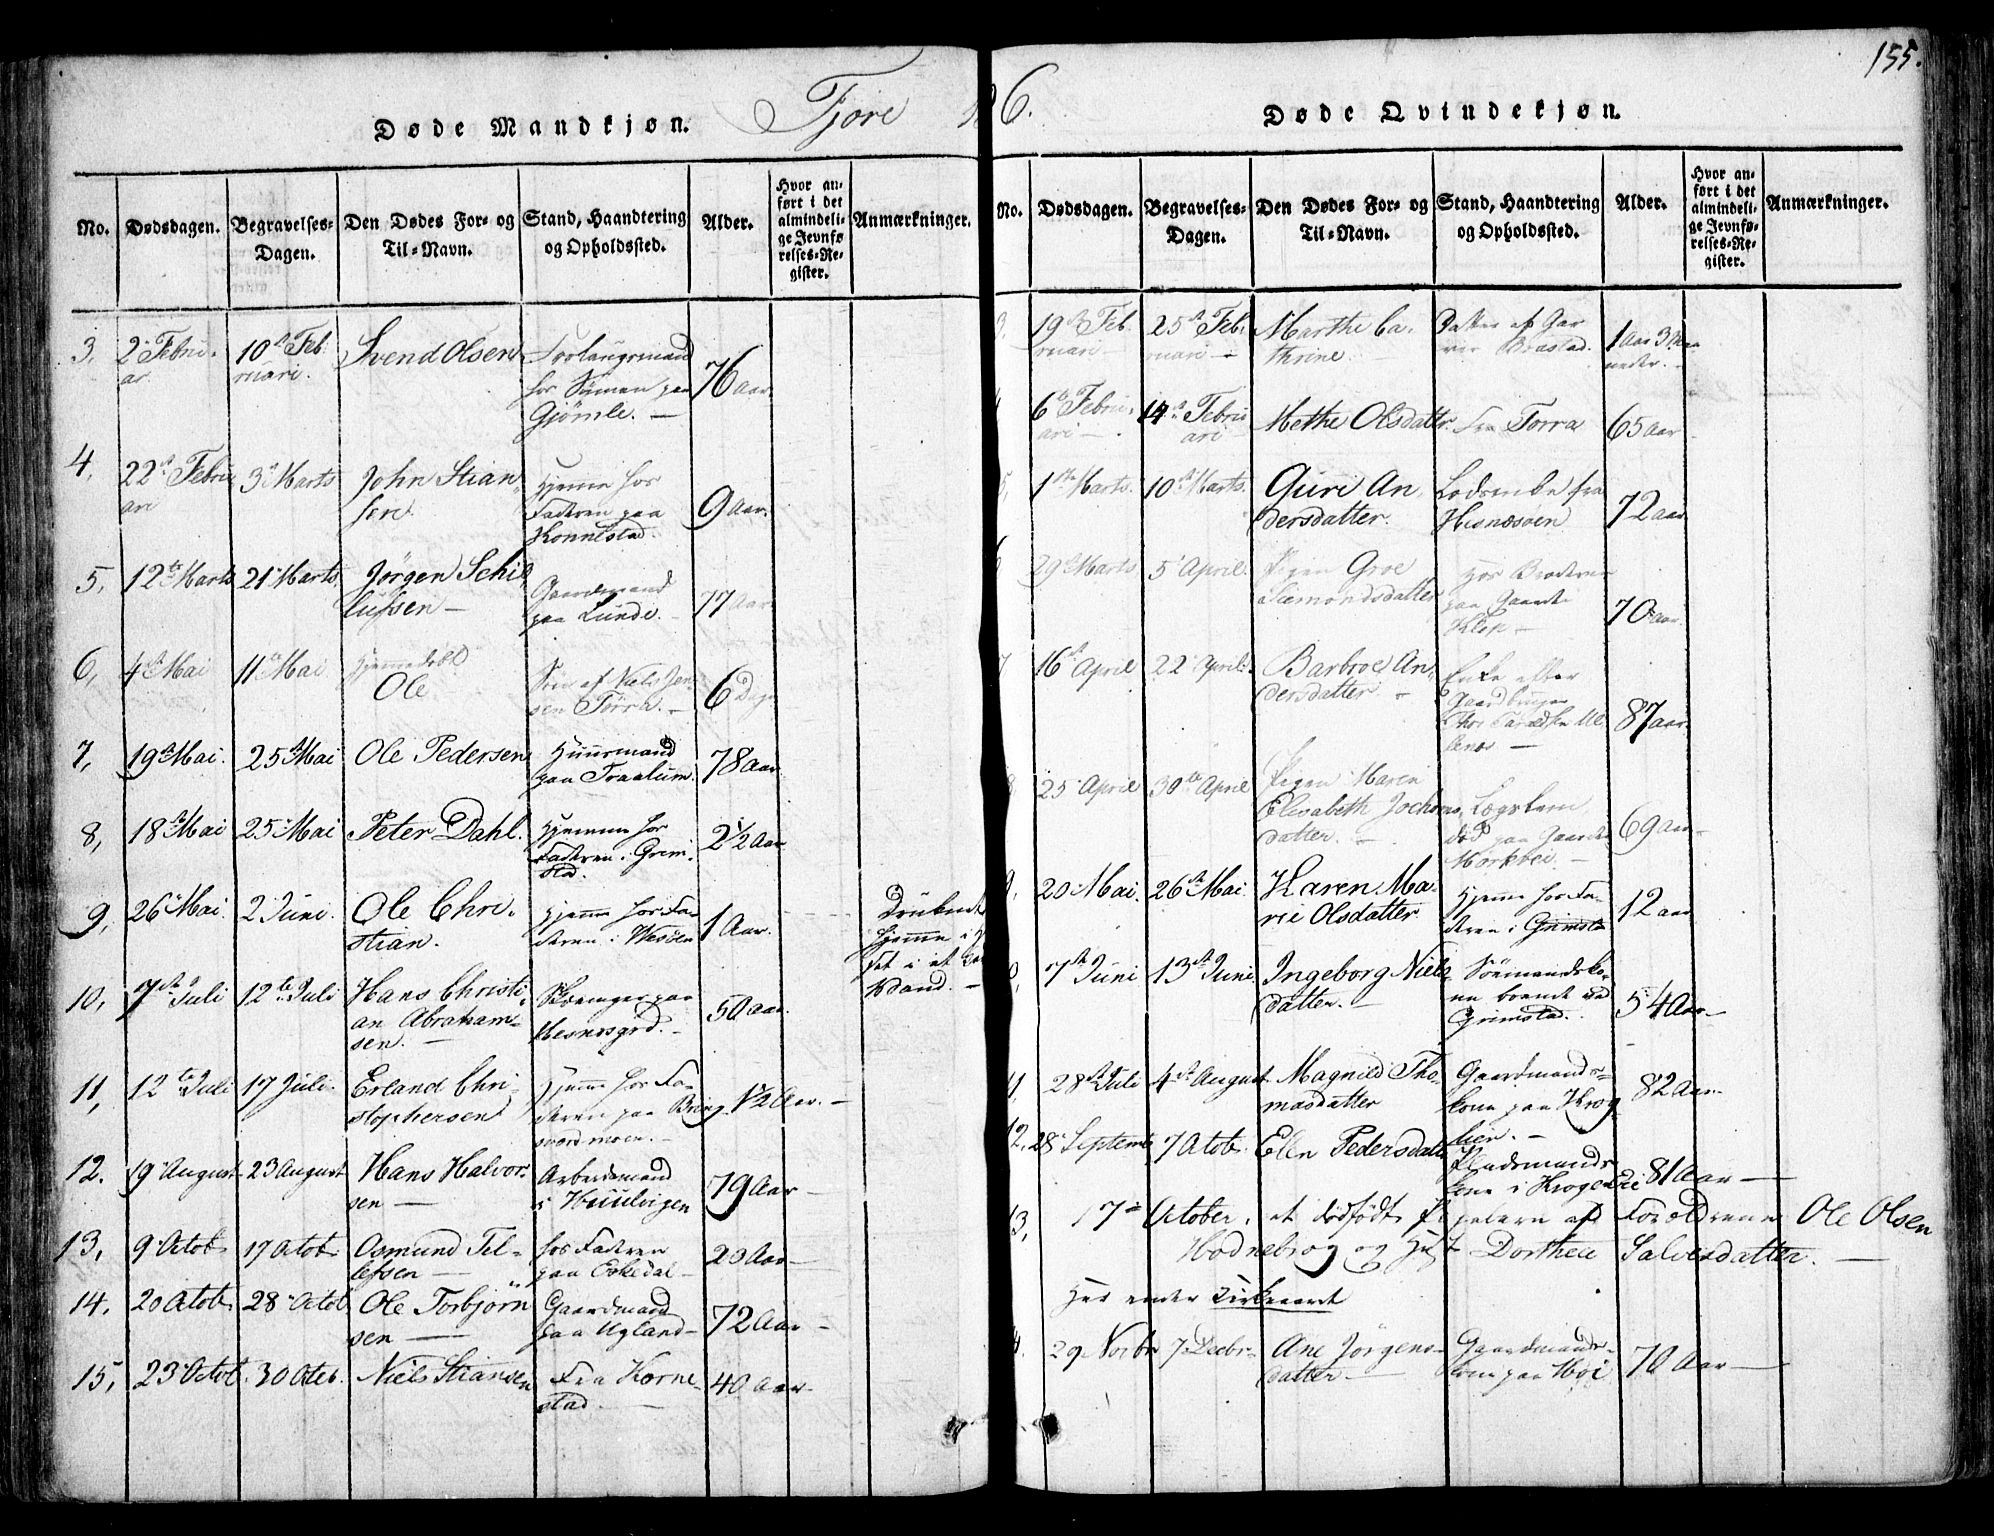 155.
Fjøre
6.
Døde Mandkjøn.
No.
Dødsdagen.
Begravelses-
Dagen.
Den Dødes For- og
Til-Navn.
Stand, Haandtering
og Opholdssted.
Alder.
Hvor an-
ført i det
almindeli-
ge Jevnfø
relses-Re-
gister.
Anmærkninger.
3,
2 Febru-
ar.
10 Feb
ruari.
Svend Olsen
hos Sönnen paa
Gjömle. —
76 Aar.
4,
22 Febru
ari
3 Marts
John Stian
sen
Hjemme hos
Faderen paa
Konnestad.
9 Aar.
5,
12te Marts
21 Marts
Jörgen Schil
lufsen —
Gaardmand
paa Lunde. -
77 Aar
6,
4de Mai
11te Mai
Hjemmedöbt
Ole
Sön af Niels Jen-
sen Törra. -
6 Dage
7,
19 Mai.
25 Mai
Ole Pedersen
Huusmand
paa Traalum.
78 Aar
8,
18 Mai
25 Mai
Peter Dahl.
Hjemme hos
Faderen i Grim-
stad.
2½ Aar
9,
26 Mai.
2 Juni.
Ole Chri-
stian.
Hjemme hos Fa-
deren i Wesöen
1 Aar.
Druknet
hjemme i
fat i et
Vand. -
10,
7de Juli
12te Juli
Hans Christi-
an Abraham-
sen. —
Hesnesgrd. -
50 Aar.
11,
12te Juli
17 Juli.
Erland Chri-
stophersen
Hjemme hos Fa-
deren paa Bring-
sværdmoen. -
1½ Aar. —
12.
19 August
23 August
Hans Halvor-
sen —
Arbeidsmand
i Huulvigen
79 Aar —
13,
9 Octob.
17 Octob.
Osmund Tel-
lefsen —
hos Faderen
paa Eskedal -
20 Aar —
14.
20 Octob.
28 Octob
Ole Torbjörn
sen —
Gaardmand
paa Ugland -
72 Aar —
15,
23 Octob.
30 Octob.
Niels Stiansen
Fra Korne-
stad. —
40 Aar —
Døde Qvindekjøn.
No.
Dødsdagen.
Begravelses-
Dagen.
Den Dødes For- og
Til-Navn.
Stand, Haandtering
og Opholdssted.
Alder.
Hvor an-
ført i det
almindeli-
ge Jevnfø-
relses-Re-
gister.
Anmærkninger.
3,
19 Feb.
ruari —
25 Feb.
ruari —
Marthe Ca-
thrine.
Datter af
Brastad.
1 Aar 3 Maa
neder. -
6te Febru-
ari —
14 Febru
ari
Methe Olsdatter.
fra Torra
65 Aar
5,
1ste Marts.
10 Marts.
Guri An-
dersdatter.
fra
Hesnesöen
72 aar
6
29 Marts
5 April.
Pigen Groe
Sæmondsdatter
Hos Broderen
paa Gaarden
Klep —
70 aar.
7
16 April
22 April.
Barbroe An-
dersdatter —
Enke efter
Gaardbruger
lenes —
87 aar
8
25 April
30te April
Pigen Maren
Elisabeth Jochums-
datter. —
Lægslem,
död paa Gaarden
Morkbei. —
69 Aar —
9,
20 Mai.
26 Mai
Karen Ma-
rie Olsdatter
Hjemme hos Fa-
deren i Grimstad
12 aar
7de Juni
13de Juni
Ingeborg Niels-
datter. —
Sömandsko-
ne boende ved
Grimstad.
54 Aar —
28 Juli
4de August
Magnild Tho-
masdatter
Gaardmands-
kone paa Krog-
lien. —
82 Aar. -
12.
28 Septemb
7 Octob.
Ellen Pedersdatter
Pladsmands-
kone i
81 Aar —
13,
17de October, et dödfödt Pigebarn af Forældrene Ole Olsen
Hodnebrog og Hust Dorthea Salvesdatter. —
Her ender Kirkeaaret
29 Novbr
7 Decbr
Ane Jörgens-
datter —
Gaardmands-
kone paa Höi
70 Aar —